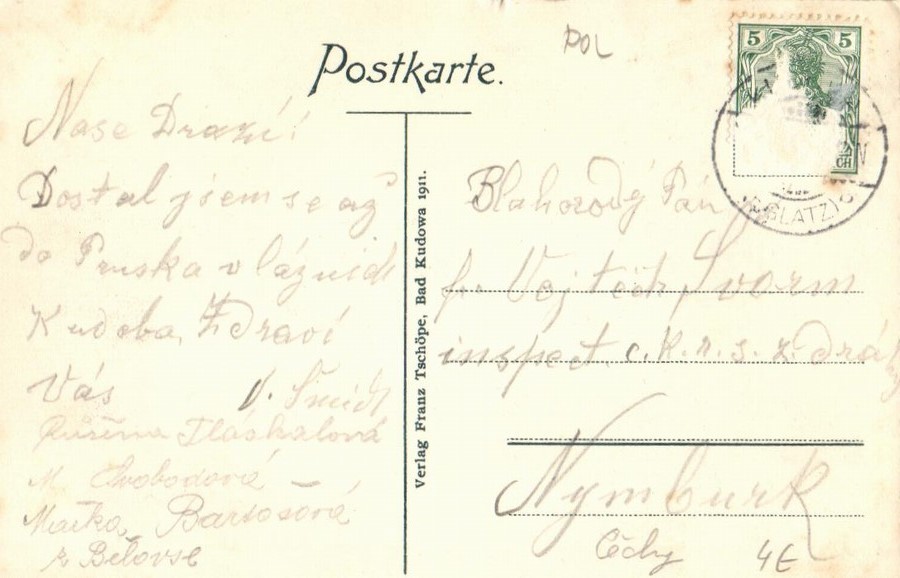 POL
Postkarte.
5 5
(BZ. GLATZ)
Naše Drazí!
Dostal jsem se až
do Pruska v lázních
Kudoba, Zdraví
Vás V. Šmidt
Růžena Tláskalová
M Svobodová
Mařka Bartošová
z Bělovse
Verlag Franz Tschöpe, Bad Kudowa 1911.
Blahorodý Pán
p. Vojtěch Švorm
inspect. c.k.r.s.z. dráhy
Nymburk
Čechy 4E